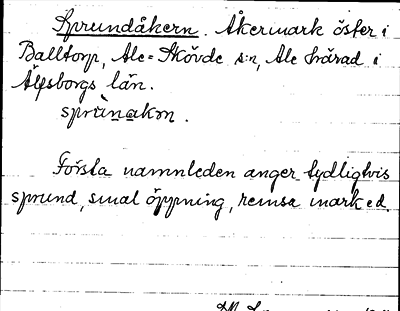 Sprundåkern. Åkermark öster i
Balltorp, Ale-Skövde s:n, Ale härad i
Älfsborgs län.
sprùnakɷn.
Första namnleden anger tydligtvis
sprund, smal öppning, remsa mark ed.